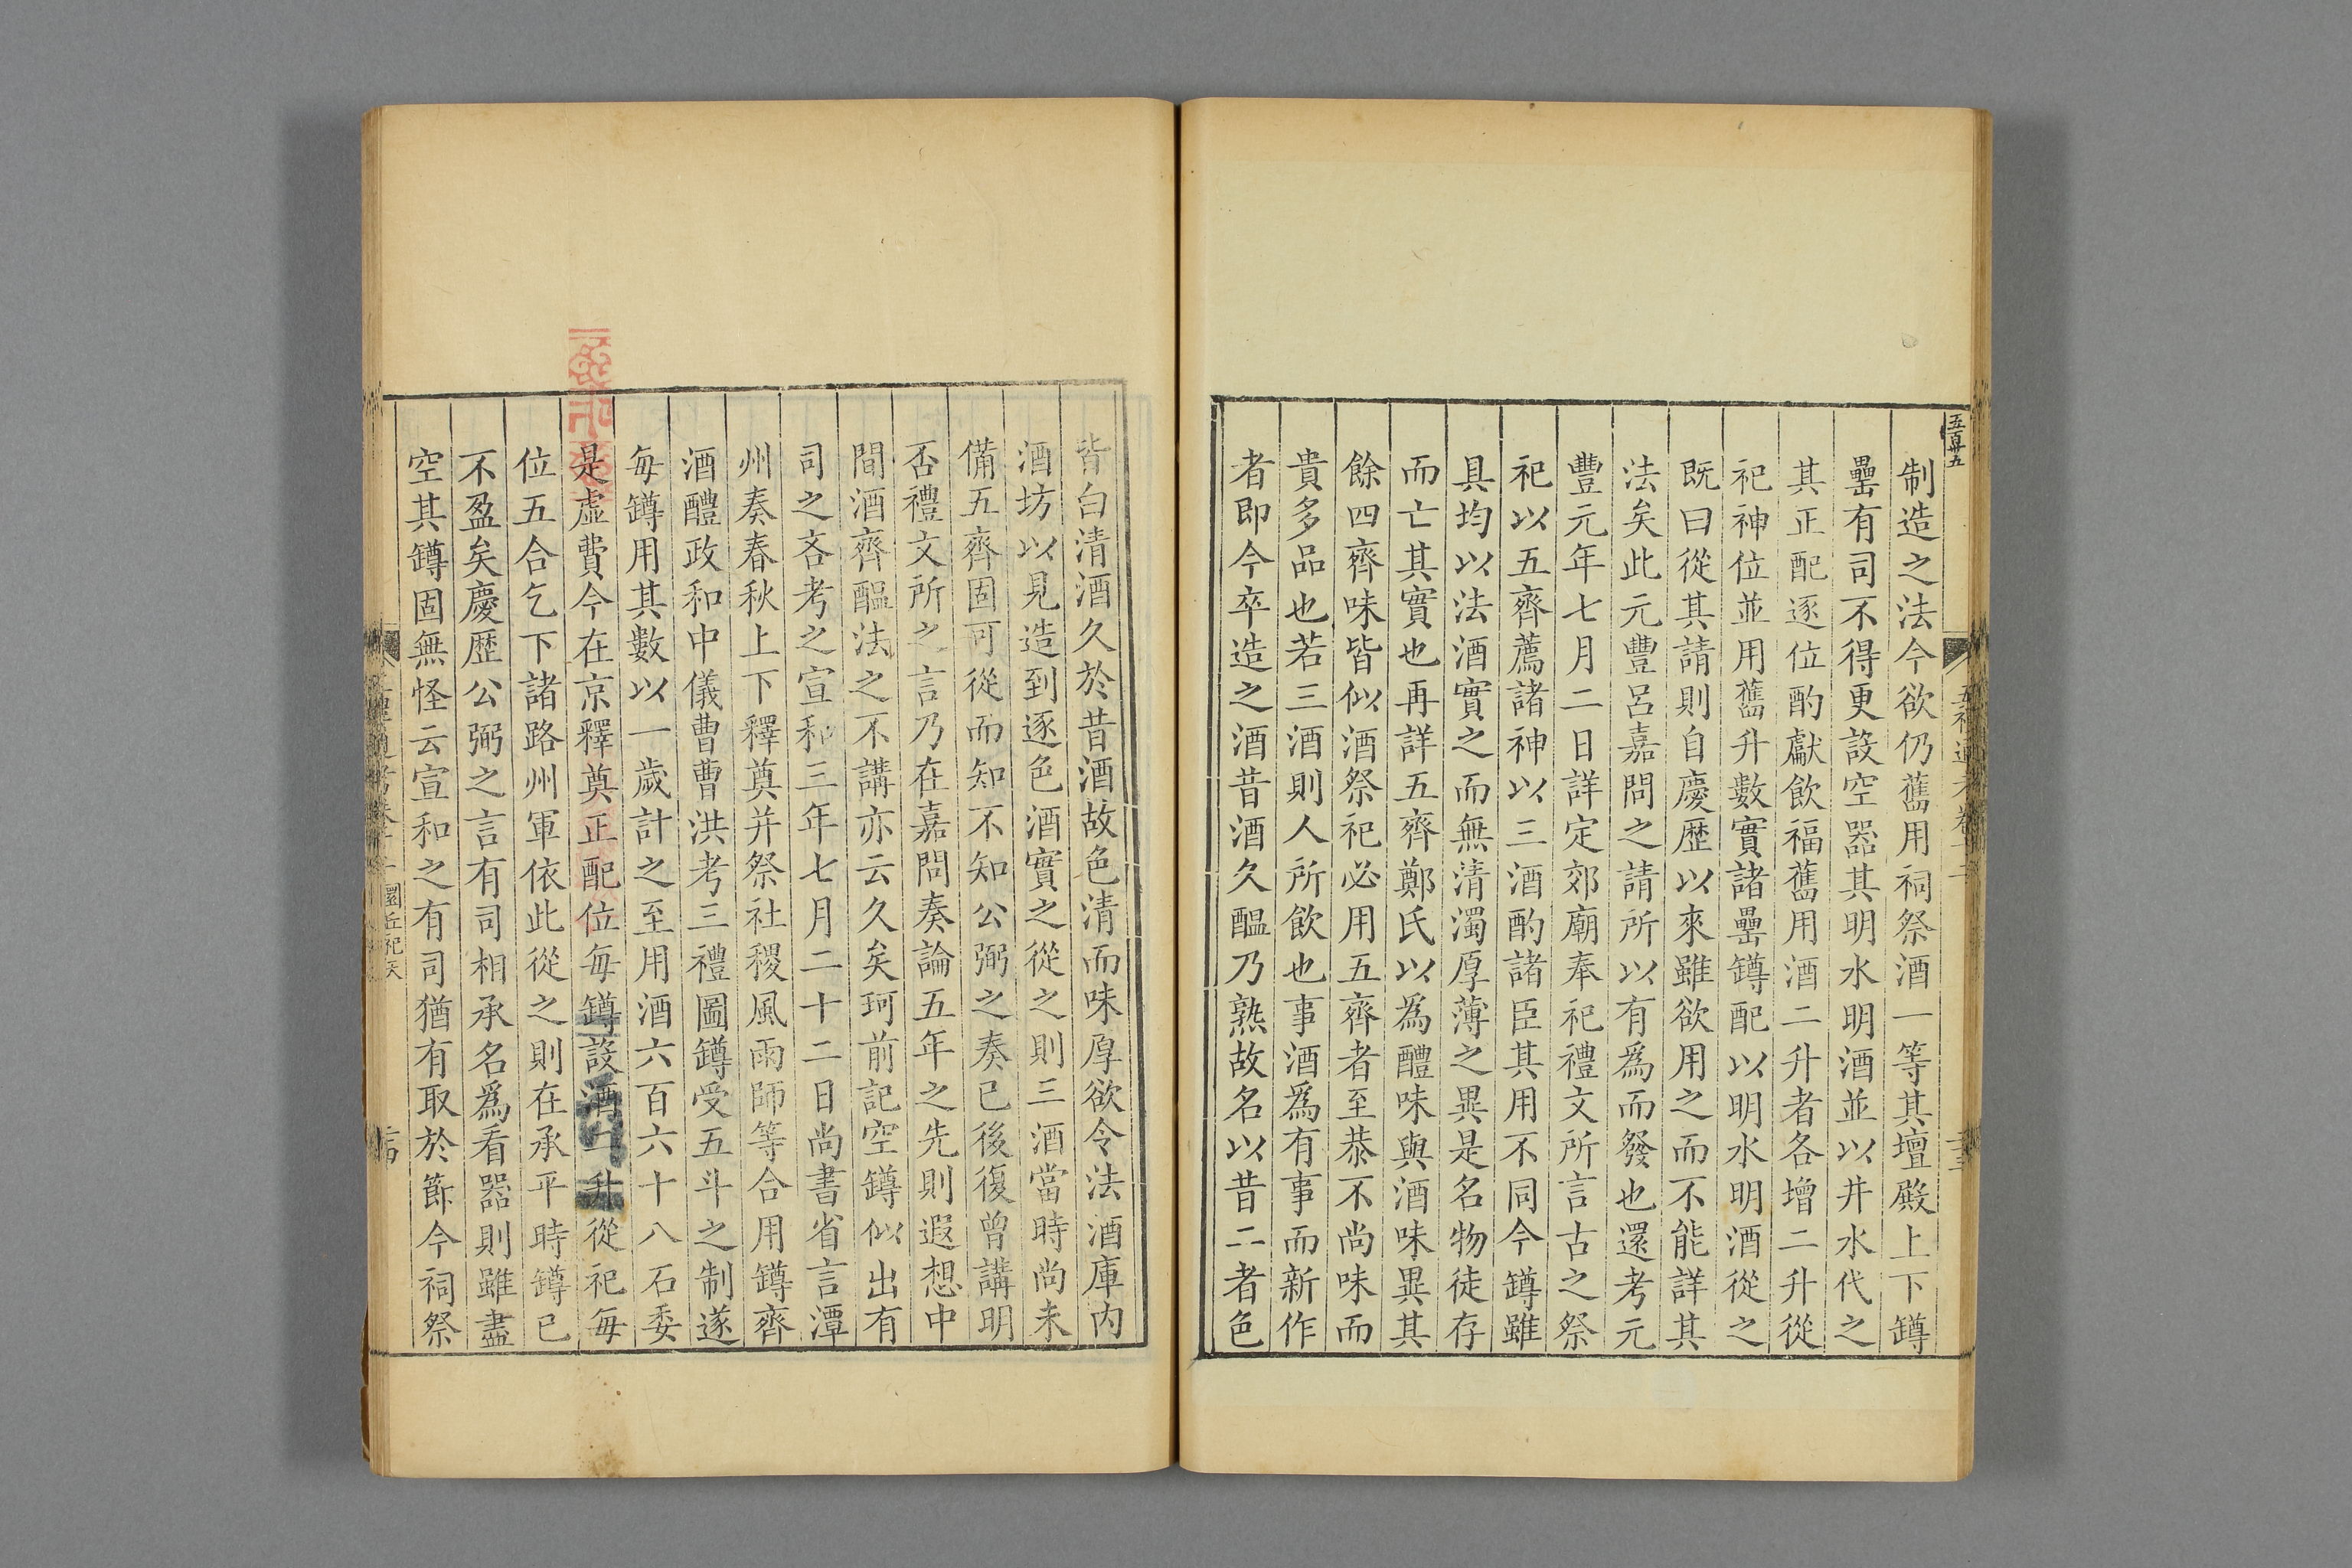 五百卅五
制造之法今欲仍舊用祠祭酒一等其壇殿上下罇
罍有司不得更設空器其明水明酒並以井水代之
其正配逐位酌獻飲福舊用酒二升者各增二升從
祀神位並用舊升數實諸罍罇配以明水明酒從之
既曰從其請則自慶歷以來雖欲用之而不能詳其
法矣此元豐呂嘉問之請所以有爲而發也還考元
豐元年七月二日詳定郊廟奉祀禮文所言古之祭
祀以五齊薦諸神以三酒酌諸臣其用不同今罇雖
具均以法酒實之而無清濁厚薄之異是名物徒存
而亡其實也再詳五齊鄭氏以爲醴味與酒味異其
餘四齊味皆似酒祭祀必用五齊者至恭不尚味而
貴多品也若三酒則人所飲也事酒爲有事而新作
者即今卒造之酒昔酒久醖乃熟故名以昔二者色
皆白清酒久於昔酒故色清而味厚欲令法酒庫内
酒坊以見造到逐色酒實之從之則三酒當時尚未
備五齊固可從而知不知公弼之奏已後復曾講明
否禮文所之言乃在嘉問奏論五年之先則遐想中
間酒齊醖法之不講亦云久矣珂前記空罇似出有
司之吝考之宣和三年七月二十二日尚書省言潭
州奏春秋上下釋奠并祭社稷風雨師等合用罇齊
酒醴政和中儀曹曹洪考三禮圖罇受五斗之制遂
每罇用其數以一歲計之至用酒六百六十八石委
是虛費今在京釋奠正配位每罇設酒一升從祀每
位五合乞下諸路州軍依此從之則在承平時罇已
不盈矣慶歷公弼之言有司相承名爲看器則雖盡
空其罇固無怪云宣和之有司猶有取於節今祠祭
圜丘祀天